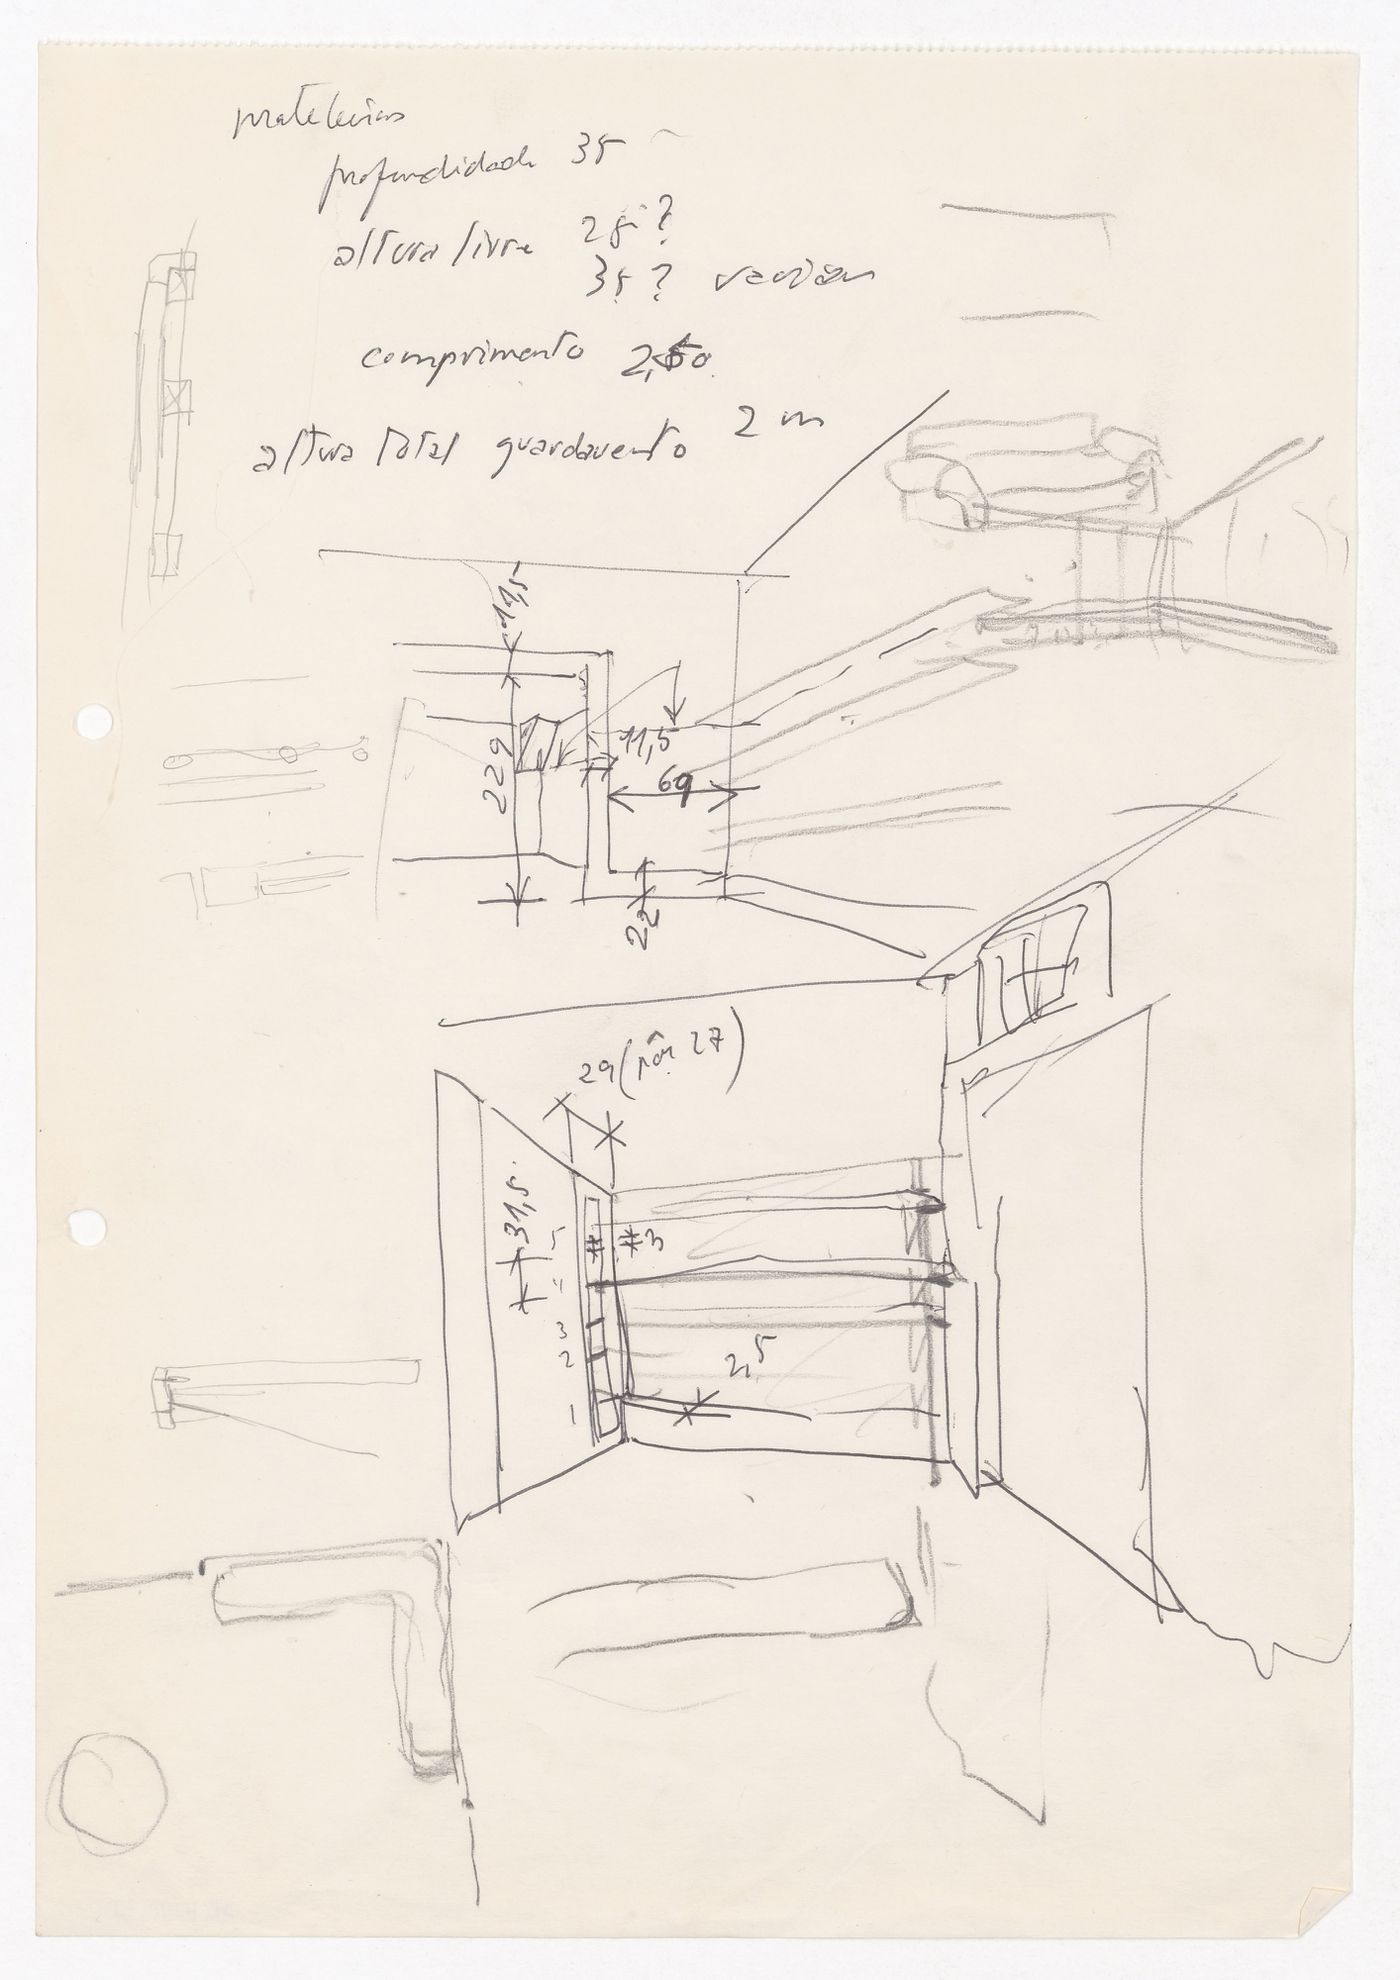 prateleiras
profundidade 35
altura livre 25?
35? variam
comprimento 2,50
altura total guardavento 2 m
11,5
229
11,5
69
22
29 (pôr 27)
31,5
# #3
3
2
1
2,5